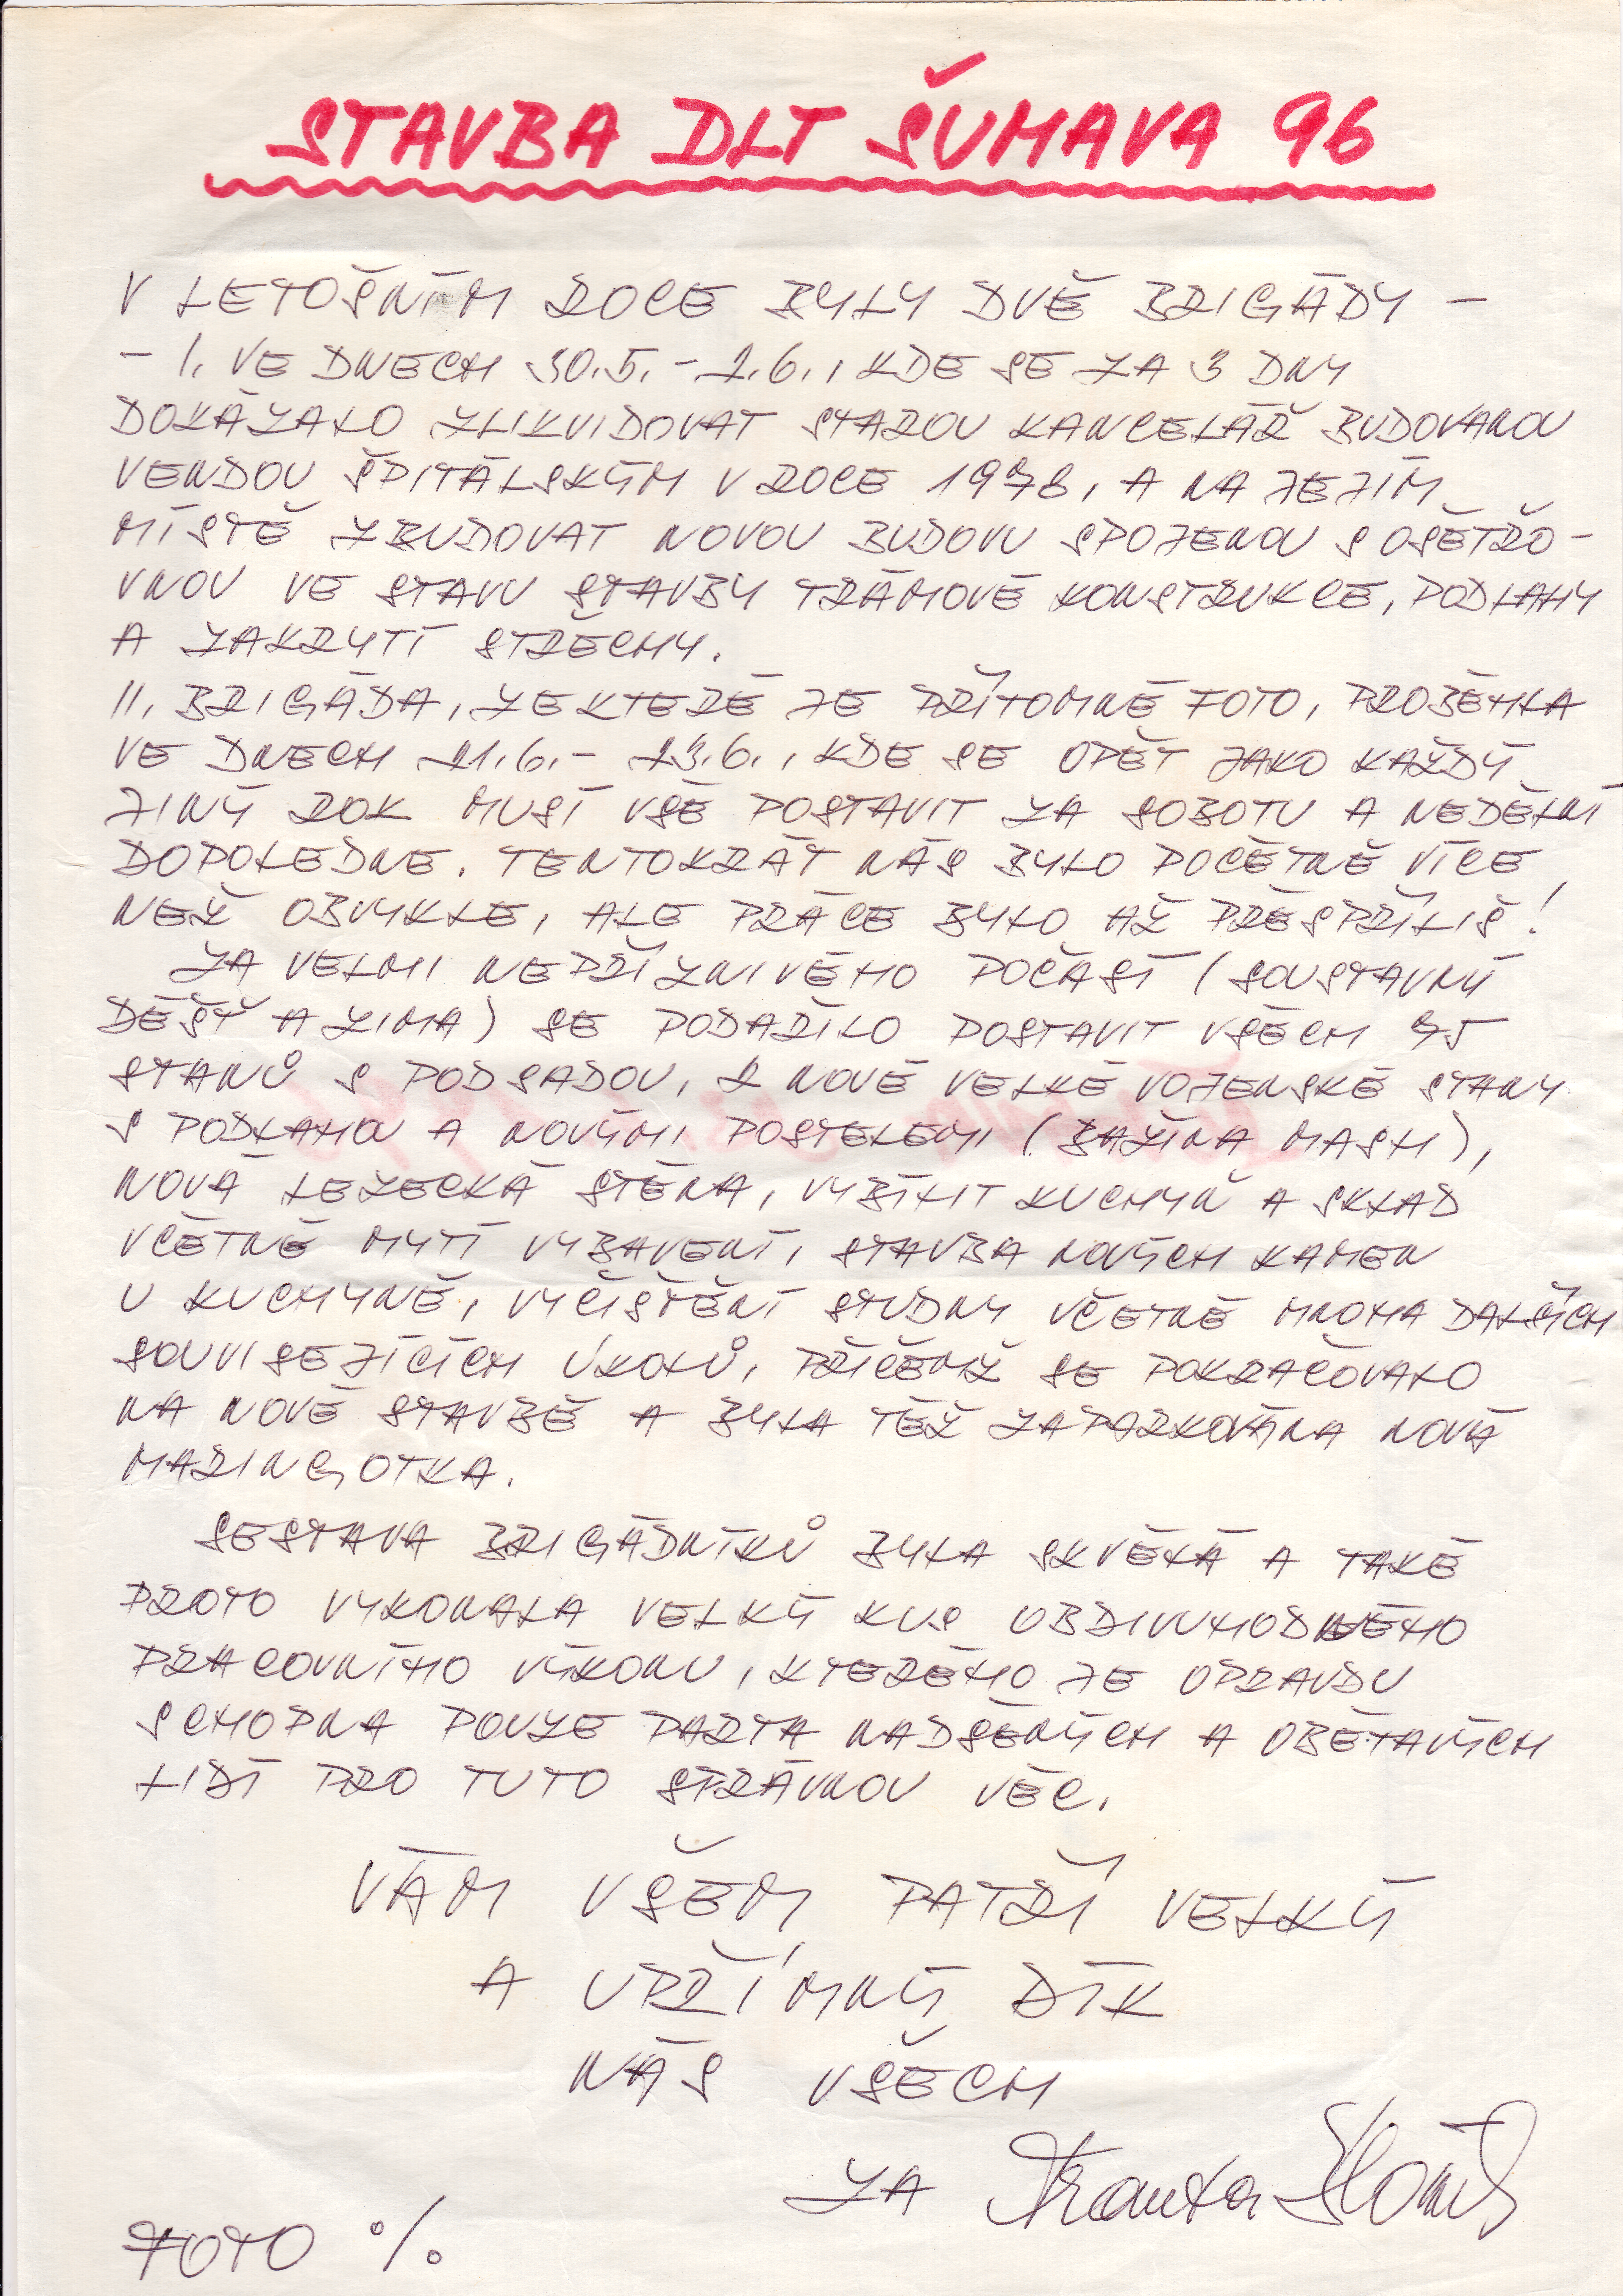 STAVBA DLT ŠUMAVA 96
V LETOŠNÍM ROCE BYLY DVĚ BRIGÁDY –
– I. VE DNECH 30.5. – 2.6., KDE SE ZA 3 DNY
DOKÁZALO ZLIKVIDOVAT STAROU KANCELÁŘ BUDOVANOU
VENDOU ŠPITÁLSKÝM V ROCE 1978, A NA JEJÍM
MÍSTĚ ZBUDOVAT NOVOU BUDOVU SPOJENOU S OŠETŘO-
VNOU VE STAVU STAVBY TRÁMOVÉ KONSTRUKCE, PODLAHY
A ZAKRYTÍ STŘECHY.
II. BRIGÁDA, ZE KTERÉ JE PŘÍTOMNÉ FOTO, PROBĚHLA
VE DNECH 21.6. – 23.6., KDE SE OPĚT JAKO KAŽDÝ
JINÝ ROK MUSÍ VŠE POSTAVIT ZA SOBOTU A NEDĚLNÍ
DOPOLEDNE. TENTOKRÁT NÁS BYLO POČETNĚ VÍCE
NEŽ OBVYKLE, ALE PRÁCE BYLO AŽ PŘESPŘÍLIŠ!
ZA VELMI NEPŘÍZNIVÉHO POČASÍ (SOUSTAVNÝ
DÉŠŤ A ZIMA) SE PODAŘILO POSTAVIT VŠECH 45
STANŮ S PODSADOU, 2 NOVÉ VELKÉ VOJENSKÉ STANY
S PODLAHOU A NOVÝMI POSTELEMI (BAŽINA MASH),
NOVÁ LEZECKÁ STĚNA, VYBÍLIT KUCHYŇ A SKLAD
VČETNĚ MYTÍ VYBAVENÍ, STAVBA NOVÝCH KAMEN
U KUCHYNĚ, VYČIŠTĚNÍ STUDNY VČETNĚ MNOHA DALŠÍCH
SOUVISEJÍCÍCH ÚKOLŮ, PŘIČEMŽ SE POKRAČOVALO
NA NOVÉ STAVBĚ A BYLA TÉŽ ZAPARKOVÁNA NOVÁ
MARINGOTKA.
SESTAVA BRIGÁDNÍKŮ BYLA SKVĚLÁ A TAKÉ
PROTO VYKONALA VELKÝ KUS OBDIVUHODNÉHO
PRACOVNÍHO VÝKONU, KTERÉHO JE OPRAVDU
SCHOPNA POUZE PARTA NADŠENÝCH A OBĚTAVÝCH
LIDÍ PRO TUTO SPRÁVNOU VĚC.
VÁM VŠEM PATŘÍ VELKÝ
A UPŘÍMNÝ DÍK
NÁS VŠECH
ZA Franta
FOTO %